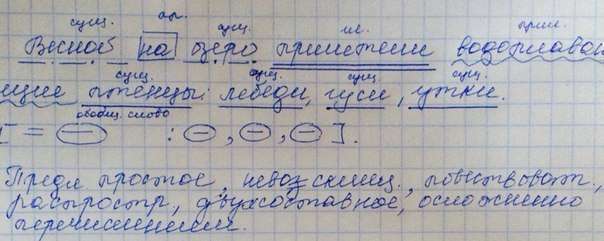 сущ. пр. сущ. гл. прил.
Весной на озеро прилетели водоплаваю
щие птенцы: лебеди, гуси, утки.
сущ. сущ. сущ. сущ.
обобщ. слово
[ = О : О, О, О ].
Предл простое, невосклиц., повествоват.,
распростр, двухсоставное, осложнено
перечислением.